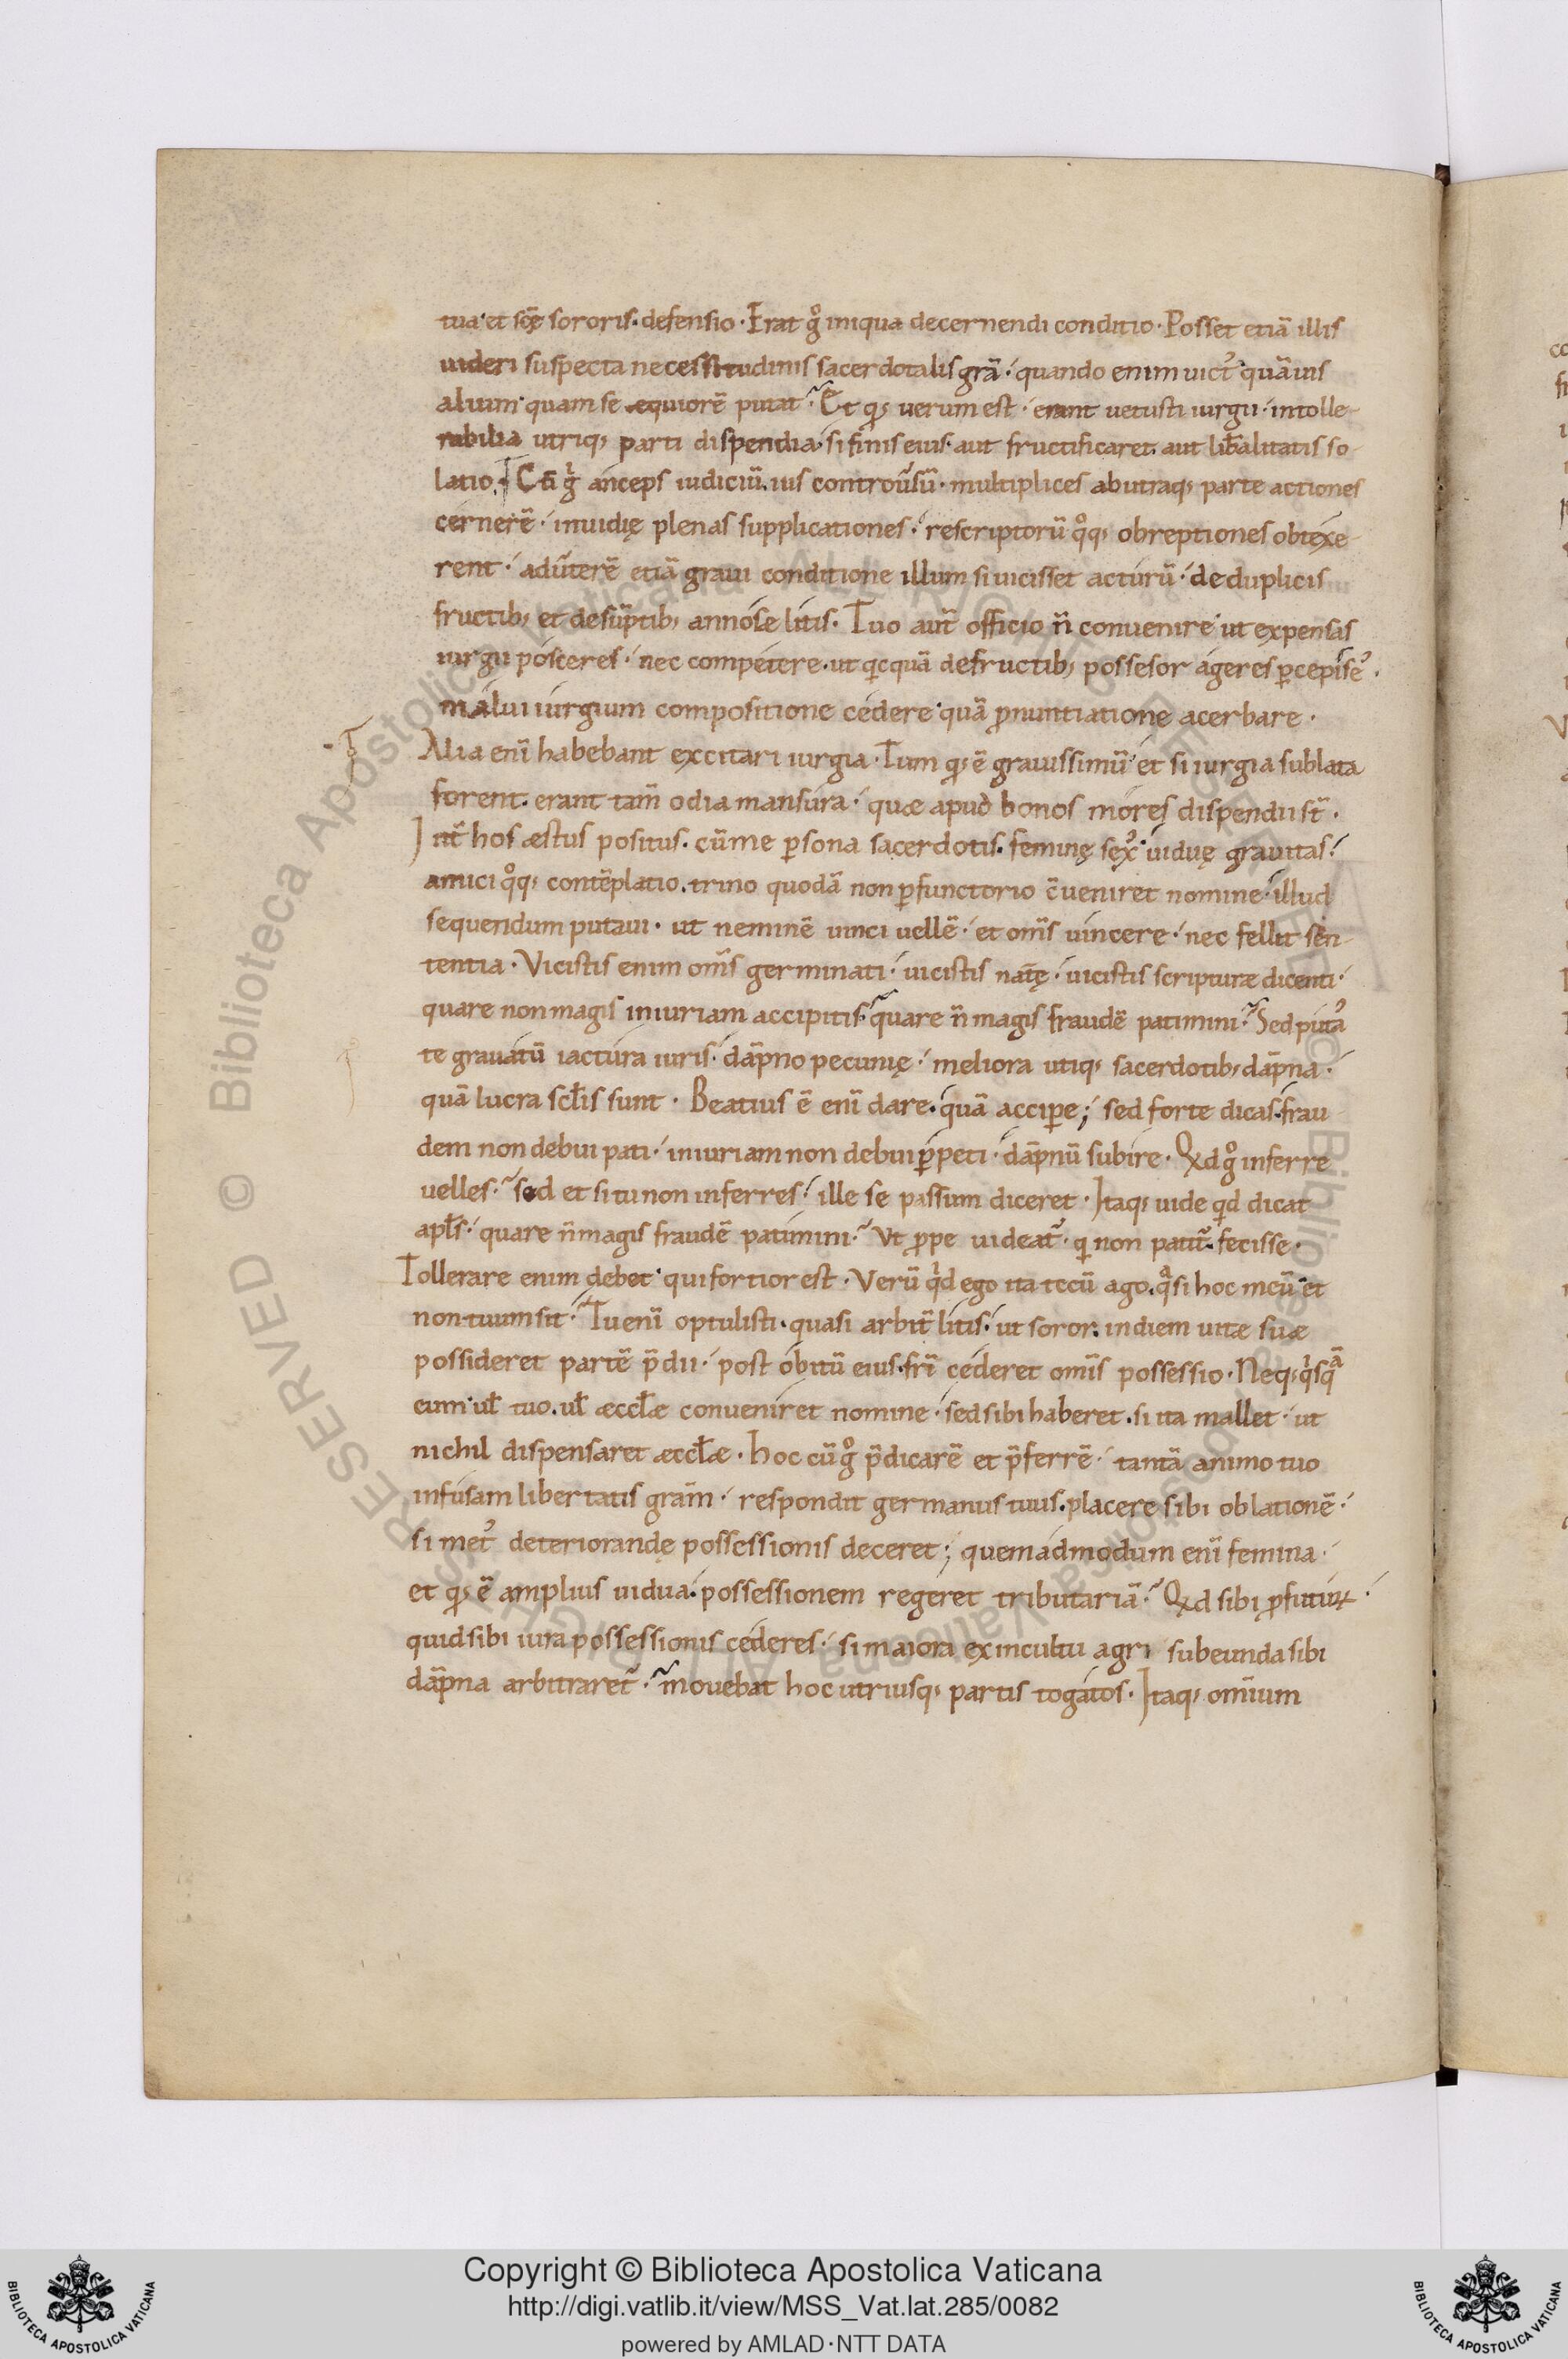 tua·et scǣ sororis·defensio·Erat gͦ iniqua decernendi conditio·Posset etiā illis
uideri suspecta necessitudinis sacerdotalis grā·quando enim uictꝰ quāuis
alium·quam se æquiorē putat·Et qͥꝫ uerum est·erant uetusti iurgii·intolle-
rabilia utriqꝫ parti dispendia·si finis eius·aut fructificaret·aut lib̄alitatis so-
latio·Cū gͥ anceps iudiciū·ius controũsū·multiplices abutraqꝫ parte actiones
cernerē·inuidię plenas supplicationes·rescriptorū qͦqꝫ obreptiones obtexe-
rent·adũterē etiā graui conditione illum si uicisset acturū·de duplicis
fructibꝫ et desūptibꝫ annose litis·Tuo aut̄ officio n̄ conuenire ut expensas
iurgii posceres·nec competere·ut qͥcquā defructibꝫ possesor ageres ꝑcepisẽ·
malui iurgium compositione cedere·quā ꝓnuntiatione acerbare·
Alia enī habebant excitari iurgia·Tum qͥꝫ ē grauissimū·et si iurgia sublata
forent·erant tam̄ odia mansura·quæ apud bonos mores dispendii st̄·
Int̄ hos æstus positus·cūme ꝑsona sacerdotis·feminę sexꝰ·uiduę grauitas·
amici qͦqꝫ contēplatio·trino quodā non ꝑfunctorio c̄ueniret nomine·illud
sequendum putaui·ut neminē uinci uellē·et om̄s uincere·nec fellit sen-
tentia·Vicistis enim om̄s germinati·uicistis nat̄ę·uicistis scripturæ dicenti·
quare non magis iniuriam accipitis·quare n̄ magis fraudē patimini·Sed putaꝰ
te grauatū iactura iuris·dāpno pecunię·meliora utiqꝫ sacerdotibꝫ dāpna·
quā lucra scl̄is sunt·Beatius ē enī dare·quā acciꝑe; sed forte dicas·frau-
dem non debui pati·iniuriam non debui ꝑpeti·dāpnū subire·Qd gͦ inferre
uelles·sed et si tu non inferres·ille se passum diceret·Itaqꝫ uide qͥd dicat
apl̄s·quare n̄ magis fraudē patimini·Vt ꝓpe uideat̃·qͥ non patit̃·fecisse·
Tollerare enim debet·qui fortior est·Verū qͥd ego ita tecū ago·qͣsi hoc meū·et
non tuum sit·Tu enī optulisti·quasi arbit̄ litis·ut soror·indiem uitæ suæ
possideret partē p̄dii·post obitū eius·fr̄i cederet om̄is possessio·Neqꝫ qͥsqͣ̄
eum·ul̄ tuo·ul̄ æccl̄æ conueniret nomine·sed sibi haberet·si ita mallet·ut
nichil dispensaret æccl̄æ·hoc cū gͦ p̄dicarē et p̄ferrē·tantā animo tuo
infusam libertatis grām·respondit germanus tuus·placere sibi oblationē·
si metꝰ deteriorandę possessionis deceret; quemadmodum enī femina·
et qͥꝫ ē amplius uidua·possessionem regeret tributariā·Qd sibi ꝓfuturꝝ·
quid sibi iura possessionis cederes·si maiora ex incultu agri subeunda sibi
dāpna arbitraret̃·mouebat hoc utriusqꝫ partis togatos·Itaqꝫ om̄ium
Copyright © Biblioteca Apostolica Vaticana
http://digi.vatlib.it/view/MSS_Vat.lat.285/0082
powered by AMLAD·NTT DATA